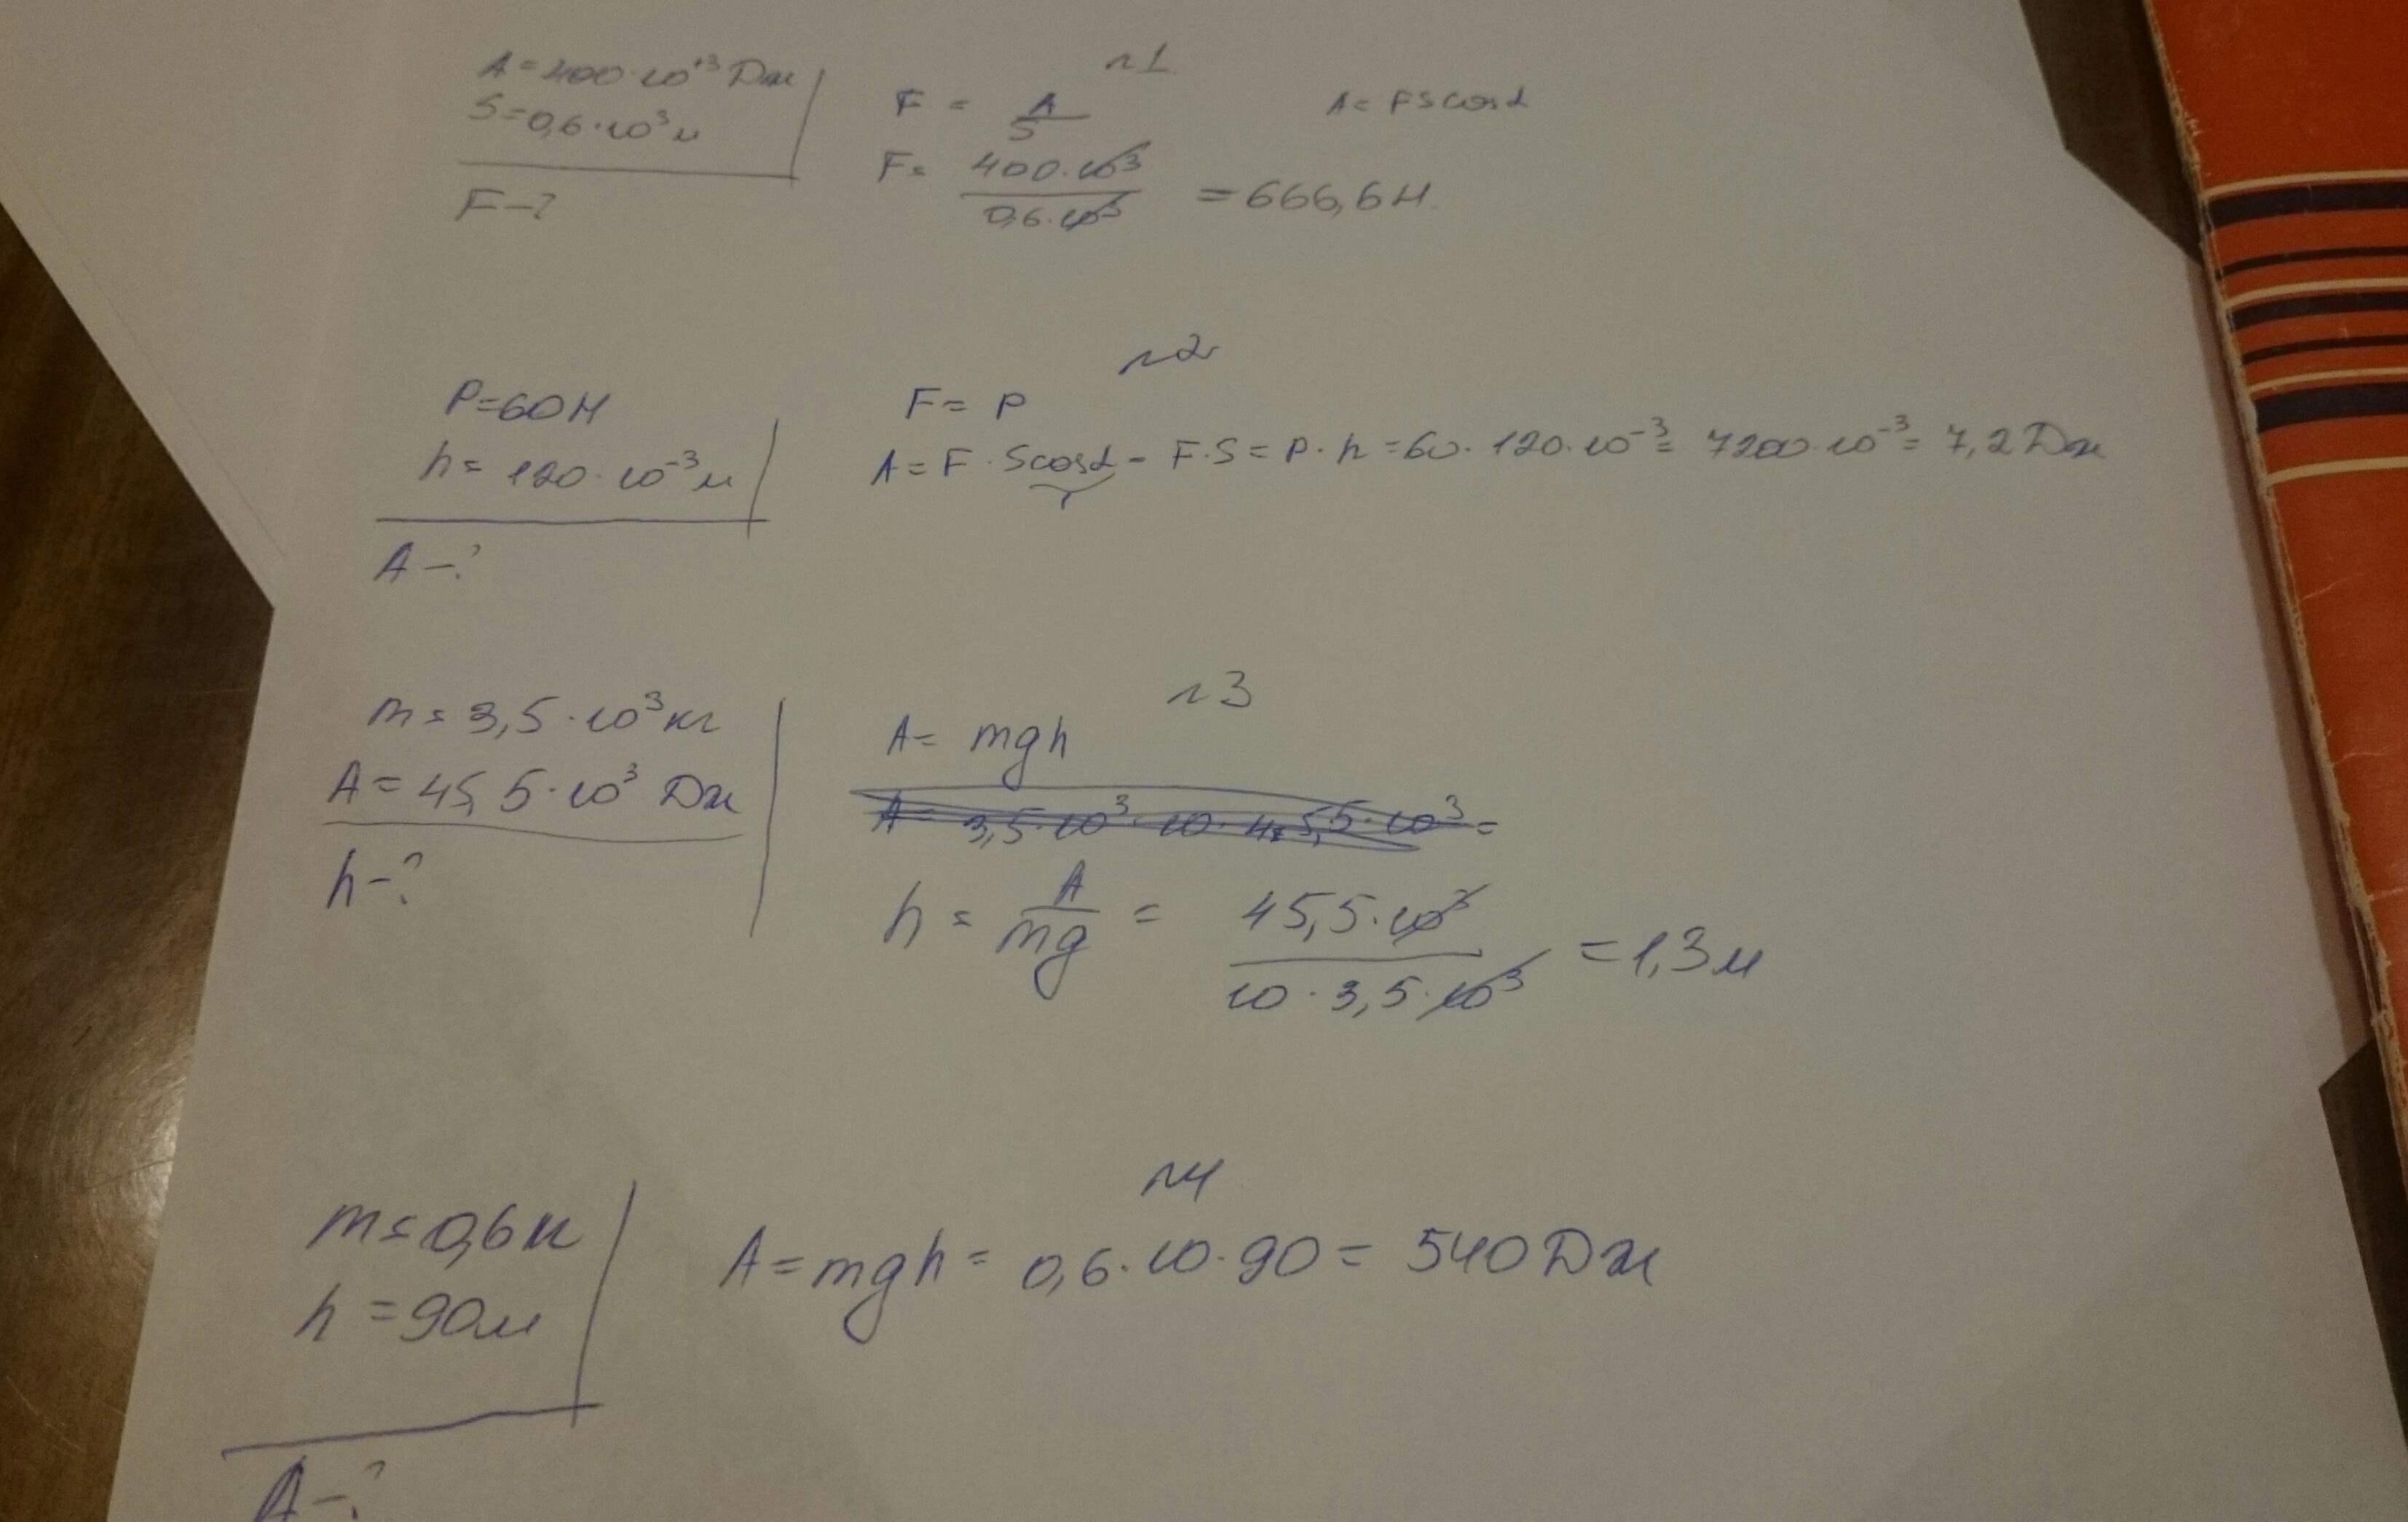 №1
A = 400·10⁺³ Дж
S = 0,6·10³ м
F - ?
F = A/S
A = FS cosα
F = 400·10³ / 0,6·10³ = 666,6 Н
№2
P = 60 Н
h = 120·10⁻³ м
A - ?
F = P
A = F·S cosα = F·S = P·h = 60·120·10⁻³ = 7200·10⁻³ = 7,2 Дж
1
№3
m = 3,5·10³ кг
A = 45,5·10³ Дж
h - ?
A = mgh
A = 3,5·10³·10·45,5·10³ =
h = A/mg = 45,5·10³ / 10·3,5·10³ = 1,3 м
№4
m = 0,6 кг
h = 90 м
A - ?
A = mgh = 0,6·10·90 = 540 Дж